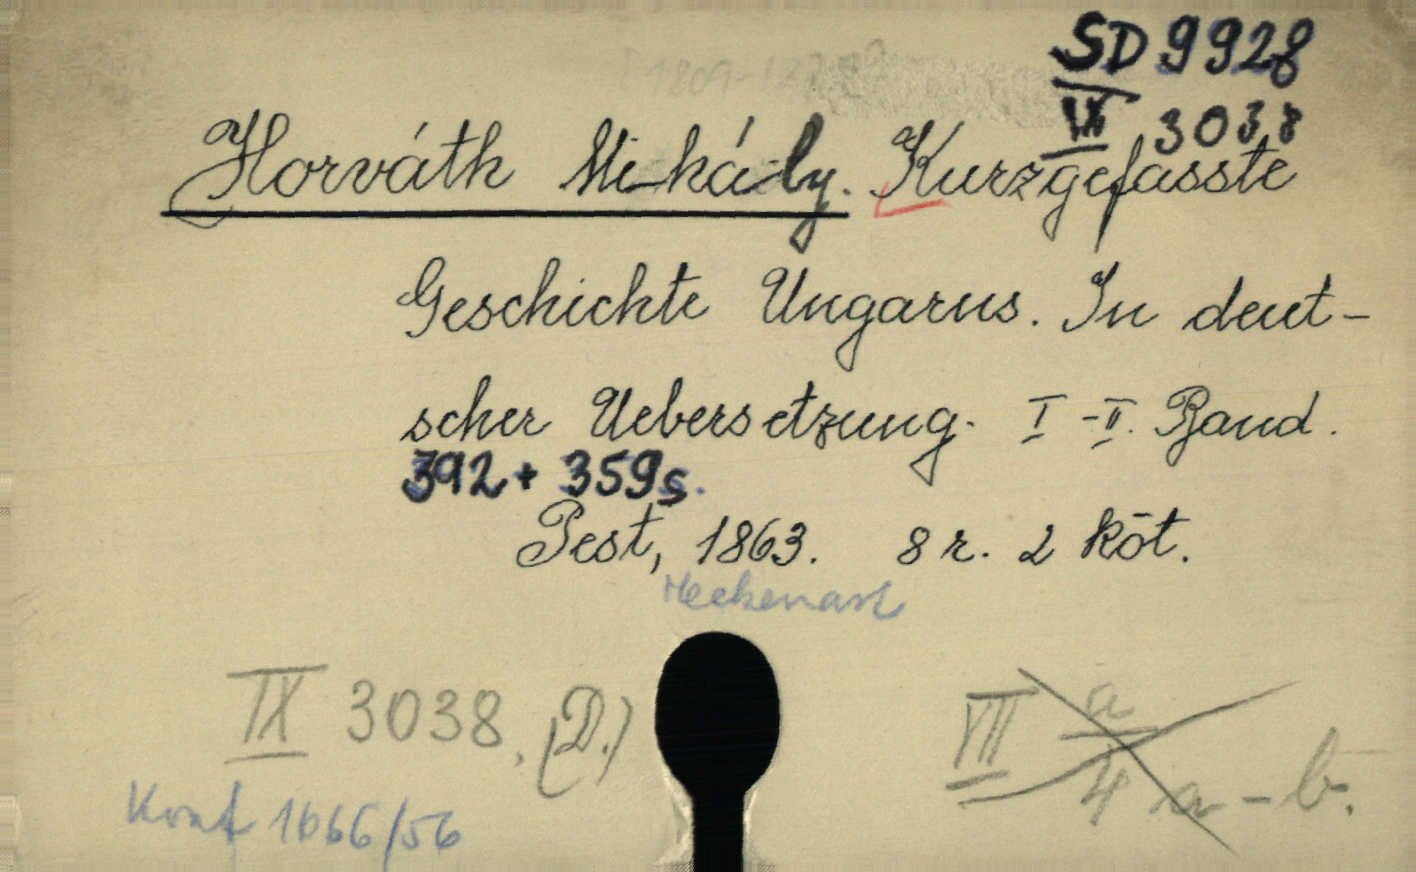 SD 9928
IX 3038
Horváth Mihály. Kurzgefasste
Geschichte Ungarns. In deut-
scher Uebersetzung. I-II. Band.
392 + 359 s.
Pest, 1863. 8 r. 2 köt.
Heckenast
IX 3038. (D.)
VII a/4 a-b.
1666/56